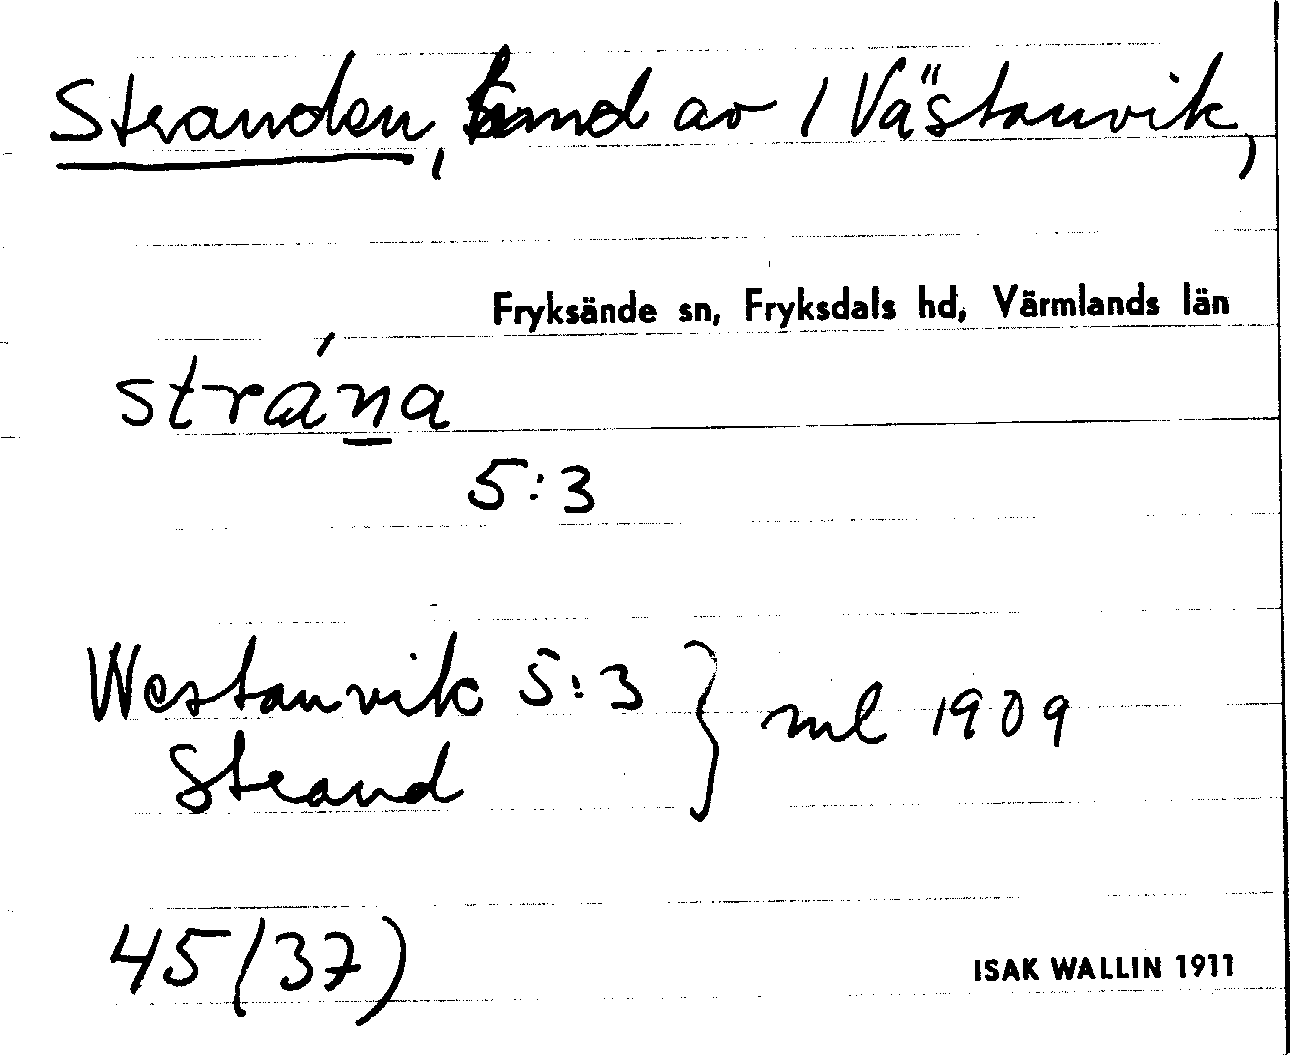 Stranden, hmd av 1 Västanvik,
Fryksände sn, Fryksdals hd, Värmlands län
strána
5:3
Westanvik 5:3 } ml 1909
Strand
45 (37)
ISAK WALLIN 1911